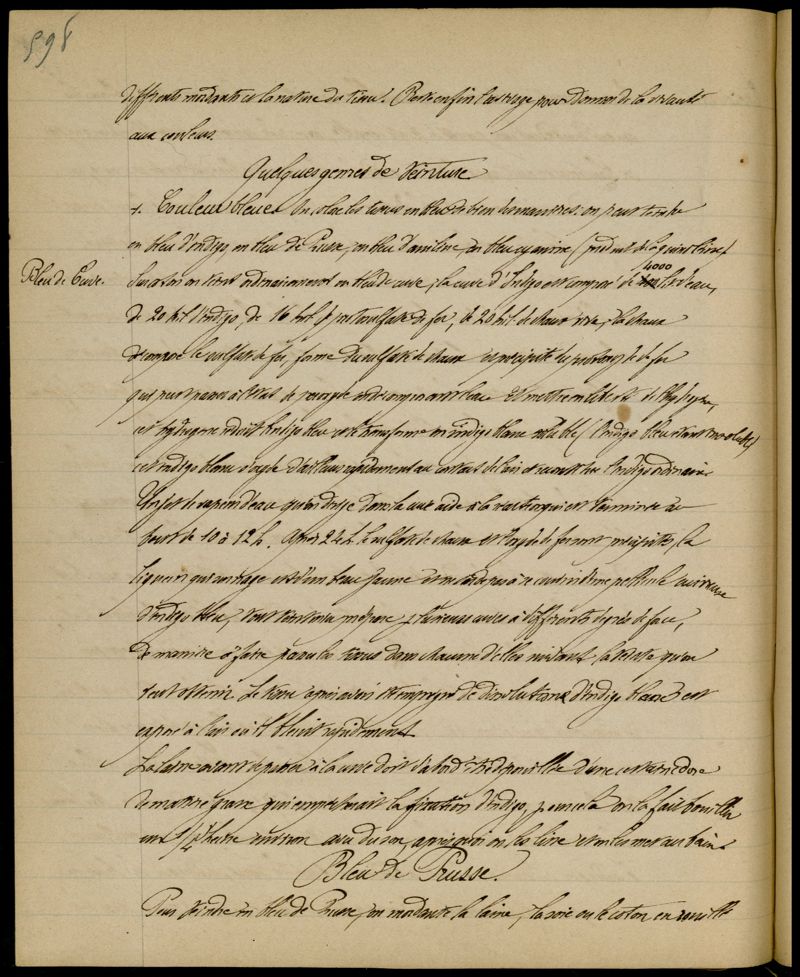 598
différents mordants et la nature du tissu. Reste enfin l'avivage pour donner de la vivacité
aux couleurs.
Quelques genres de teinture
1. Couleur bleue. On colore les tissus en bleu de bien des manières: on peut teindre
en bleu d'indigo, en bleu de Prusse, en bleu d'aniline, en bleu cyanine (produit de la quinoléine)
Bleu de Cuve.
en bleu de cuve; la cuve d'Indigo est composée de 4000 lit d'eau,
de 20 kil d'indigo, de 16 kil de protosulfate de fer, de 20 kil de chaux vive, la chaux
décompose le sulfate de fer, forme du sulfate de chaux et précipite le protoxyde de fer
qui pour passer à l'état de peroxyde décompose l'eau et mettre en liberté de l'hydrogène,
cet hydrogène réduit l'indigo bleu et le transforme en indigo blanc soluble (l'indigo bleu étant insoluble)
cet indigo blanc s'oxyde d'ailleurs rapidement au contact de l'air et l'indigo ordinaire
Un jet de vapeur d'eau qu'on dirige dans la cuve aide à la réaction qui est terminée au
bout de 10 à 12 h. Après 24 h. le sulfate de chaux et l'oxyde de fer sont précipités, la
liqueur qui surnage est d'un beau jaune et pellicule cuivreuse
d'indigo bleu, tout teinturier prépare plusieurs cuves à différents degrés de force,
de manière à faire passer les tissus dans chacune d'elles suivant la teinte qu'on
veut obtenir. Le tissu après avoir été imprégné de dissolution d'indigo blanc est
exposé à l'air où il bleuit rapidement.
La laine avant de passer à la cuve doit d'abord être dépouillée d'une certaine dose
de matière grasse qui empêcherait la fixation d'indigo, pour cela on la fait bouillir
une 1/4 d'heure environ avec du son, après quoi on les lave et on les met au bain.
Bleu de Prusse.
Pour teindre en bleu de Prusse, on mordante la laine, la soie ou le coton en rouille